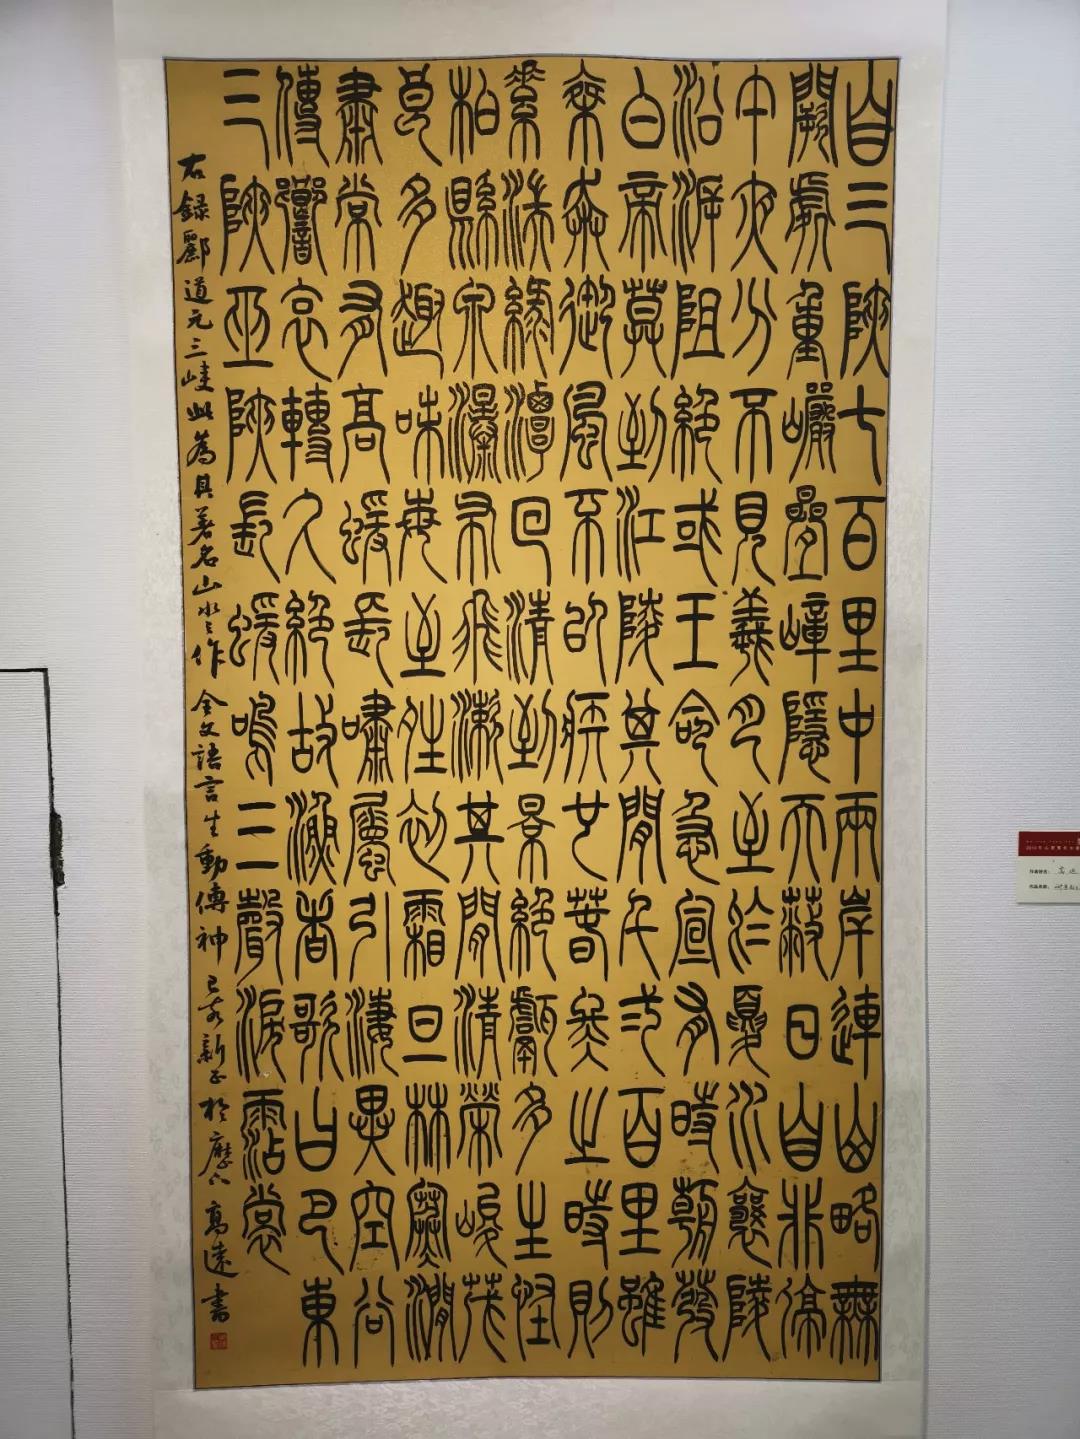 自三陝七百里中兩岸連山略無
闕處重巖疊嶂隱天蔽日自非停
午夜分不見羲月至於夏水襄陵
沿泝阻絕或王命急宣有時朝發
白帝莫到江陵其間千二百里雖
乘奔御風不以疾也春冬之時則
素湍綠潭回清到景絕巘多生怪
柏縣泉瀑布飛漱其間清榮峻茂
良多趣味每至晴初霜旦林寒澗
肅常有高猨長嘯屬引淒異空谷
傳響哀轉久絕故漁者歌曰巴東
三陝巫陝長猨鳴三聲淚霑裳
右錄酈道元三峽此為其著名山水之作 全文語言生動傳神 己亥新正於歷下 高遠書